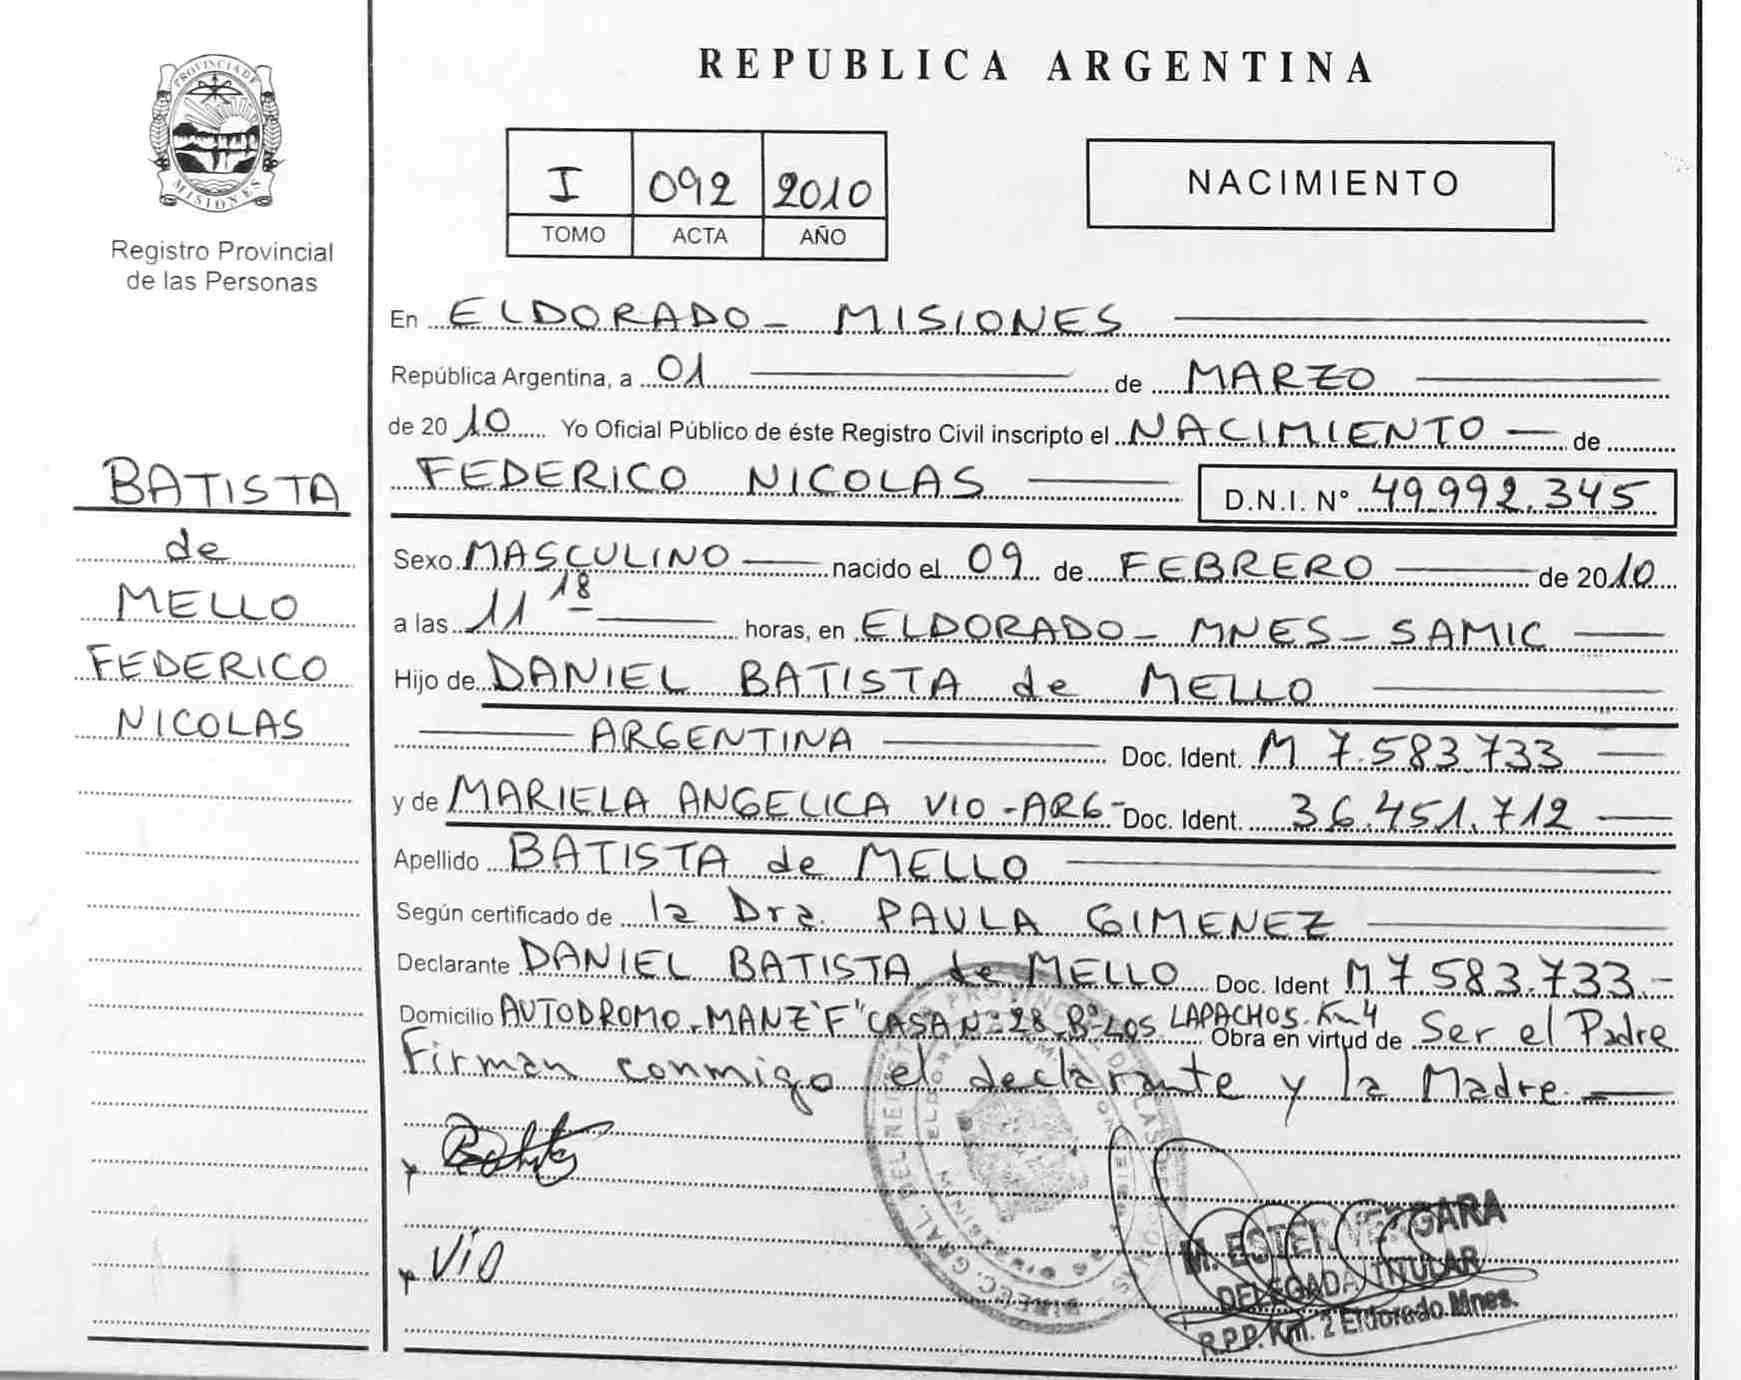 PROVINCIA DE
MISIONES
Registro Provincial
de las Personas
BATISTA
de
MELLO
FEDERICO
NICOLAS
REPUBLICA ARGENTINA
I 092 2010
TOMO ACTA AÑO
NACIMIENTO
En ELDORADO - MISIONES
República Argentina, a 01 de MARZO
de 2010 Yo Oficial Público de éste Registro Civil inscripto el NACIMIENTO de
FEDERICO NICOLAS D.N.I. Nº 49.992.345
Sexo MASCULINO nacido el 09 de FEBRERO de 2010
a las 11 18 horas, en ELDORADO - MNES - SAMIC
Hijo de DANIEL BATISTA de MELLO
ARGENTINA Doc. Ident. M 7.583.733
y de MARIELA ANGELICA VIO - ARG - Doc. Ident. 36.451.712
Apellido BATISTA de MELLO
Según certificado de la Dra. PAULA GIMENEZ
Declarante DANIEL BATISTA de MELLO Doc. Ident M 7 583.733.-
Domicilio AUTODROMO - MANZ "F" CASA Nº 28 - Bº LOS LAPACHOS. Km 4 Obra en virtud de Ser el Padre
Firman conmigo el declarante y la Madre.
VIO
M. ESTER VERGARA
DELEGADA TITULAR
R.P.P. Km. 2 Eldorado Mnes.